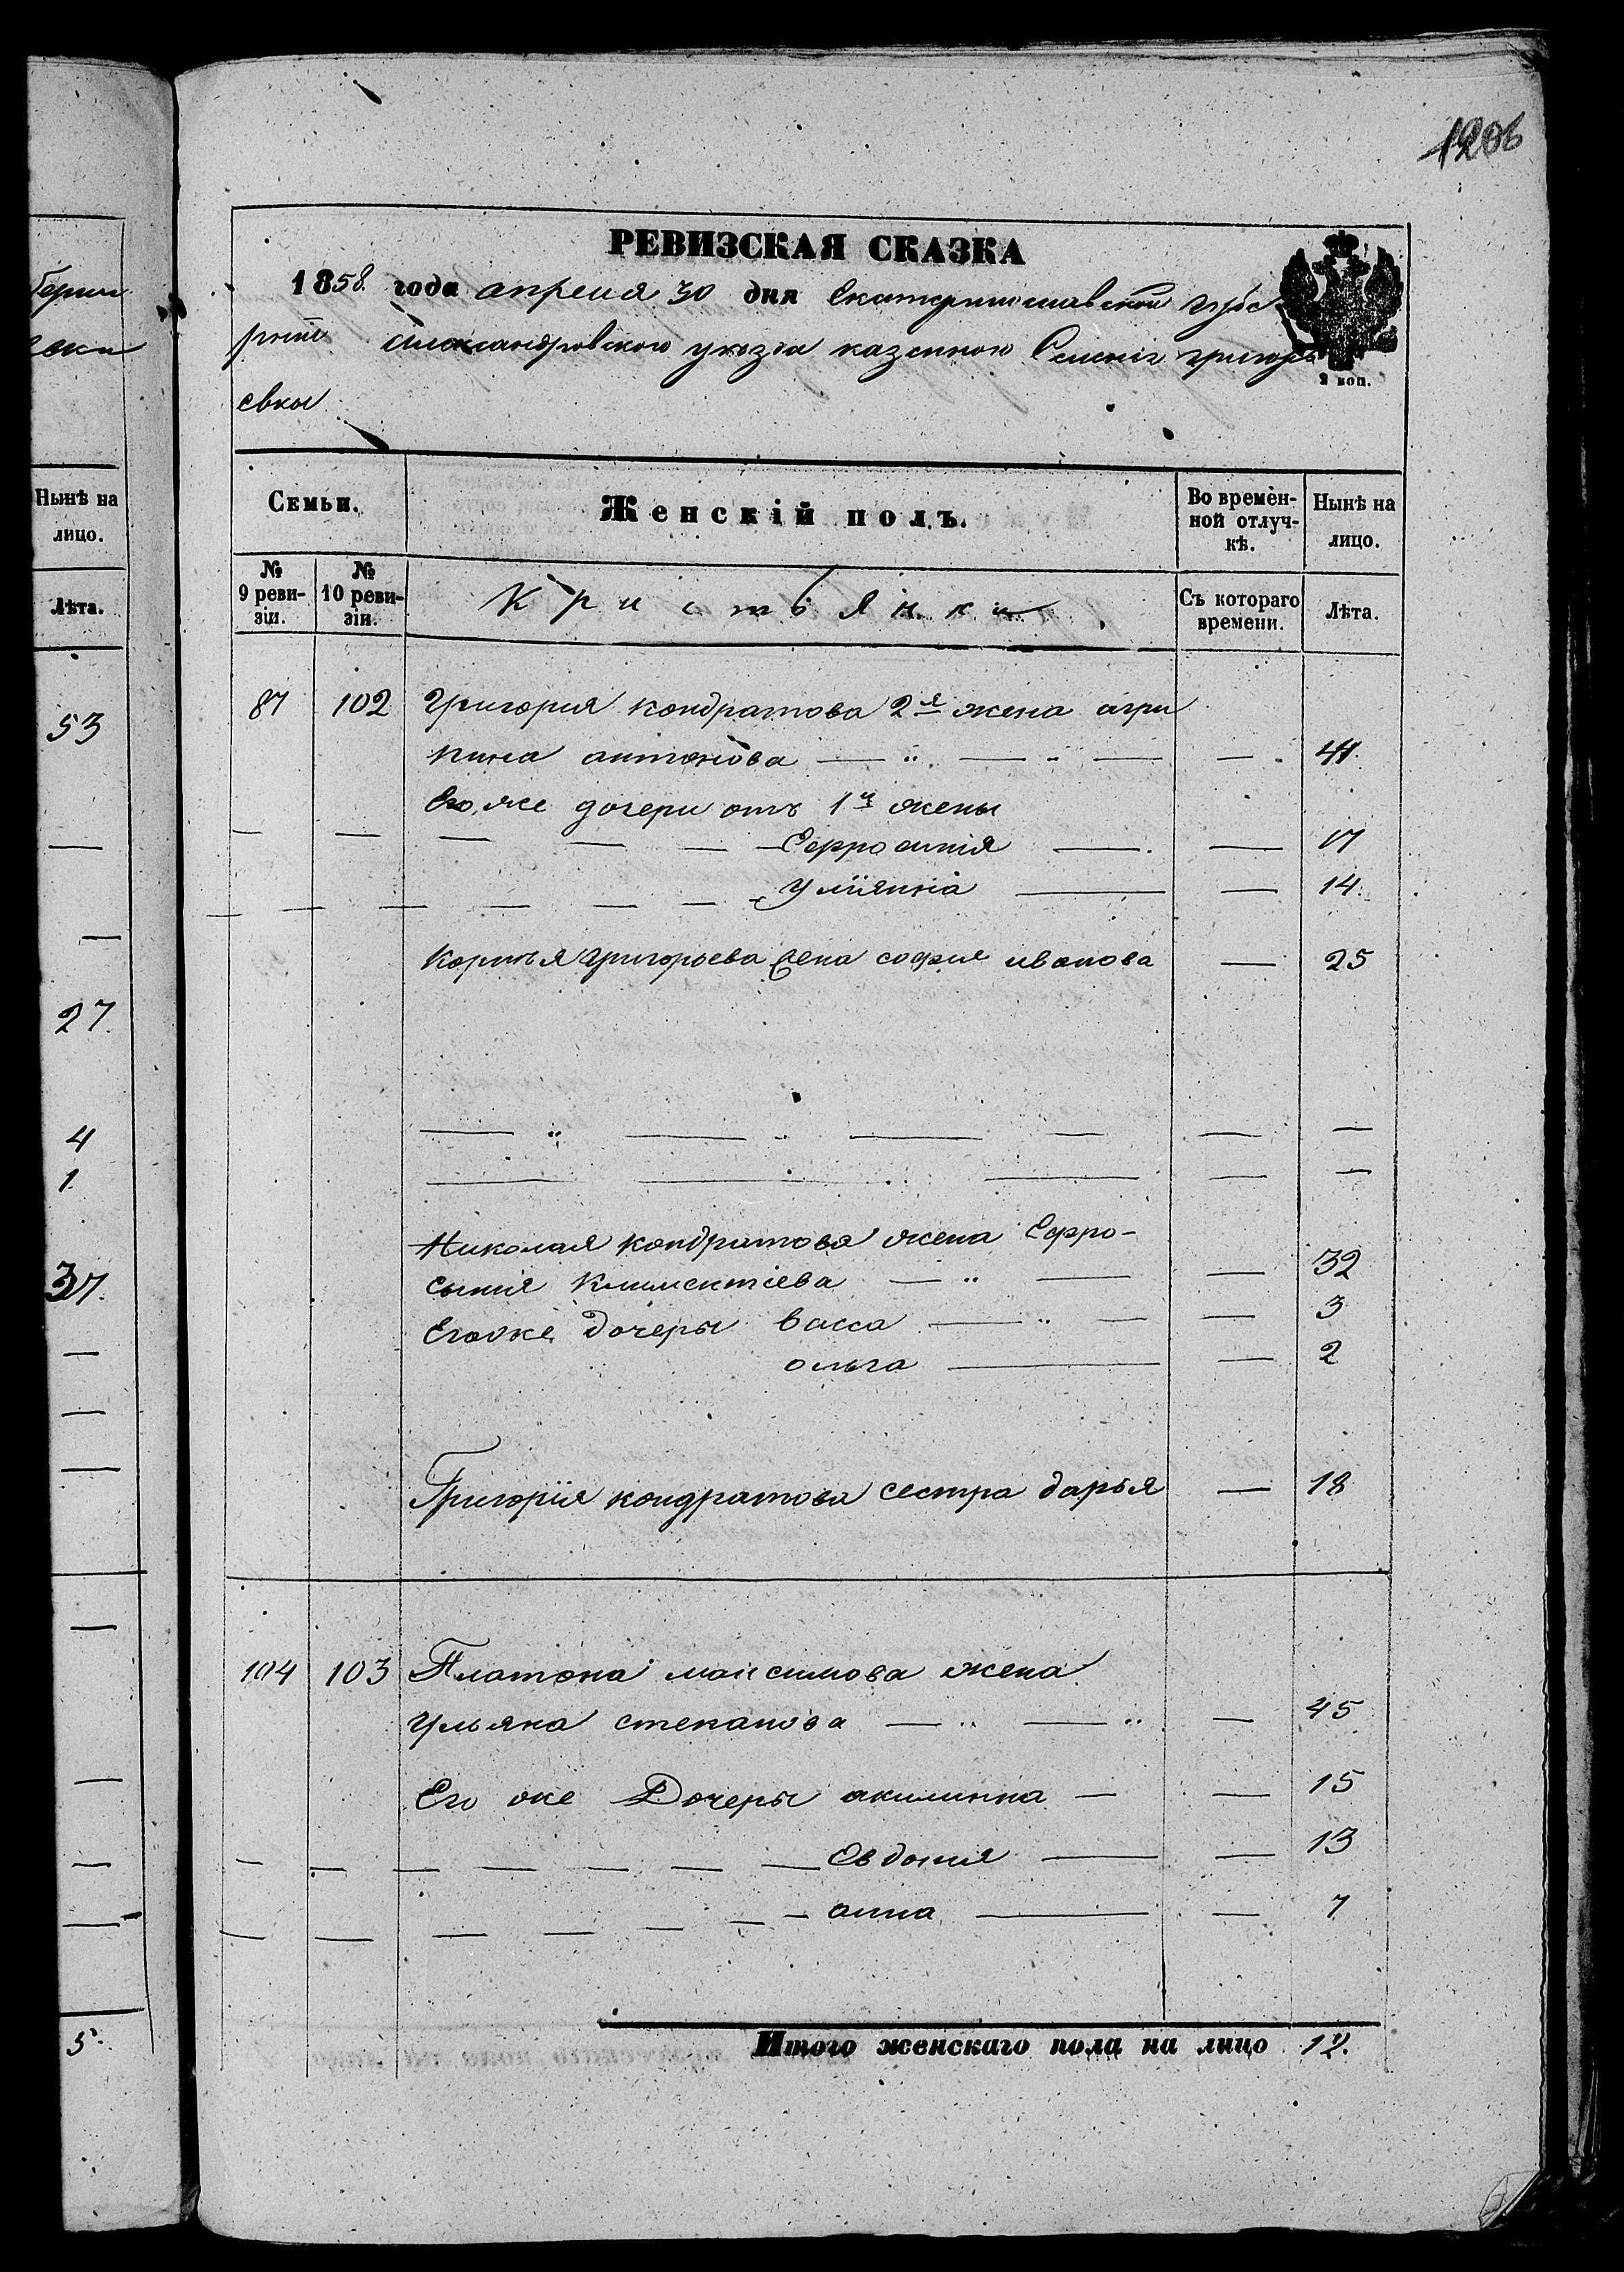 1206
РЕВИЗСКАЯ СКАЗКА
1858 года апреля 30 дня Екатеринославской губе
рніи Александровского уезда казенного Селенія григорь
евки
2 коп.
Семьи.
Женскій полъ.
Во времен-
ной отлуч-
кѣ.
Нынѣ на
лицо.
№
9 реви-
зіи.
№
10 реви-
зіи.
Кристьянки
Съ котораго
времени.
Лѣта.
87 102 Григория кондратова 2я жена агри
пина антонова — " — " — — 41
Его же дочери отъ 1й жены
— — — — — Ефросинія — — 17
— — — — — — Улиянна — — 14
Корнѣя Григорьева жена софия иванова — 25
— " — — — — —
— — — — —
Николая кондратова жена Ефро-
сыния Климентіева — " — — 32
Егоже дочеры васса — " — — 3
ольга — — 2
Григорія кондратова сестра дарья — 18
104 103 Платона максимова жена
Ульяна степанова — " — " — 45
Его же Дочеры акилинна — — 15
— — — — — — — Евдокия — — 13
— — — — — — анна — — 7
Итого женскаго пола на лицо 12.
берни
евки
Нынѣ на
лицо.
Лѣта.
53
—
—
27.
4
1
37.
—
—
—
—
—
—
—
5